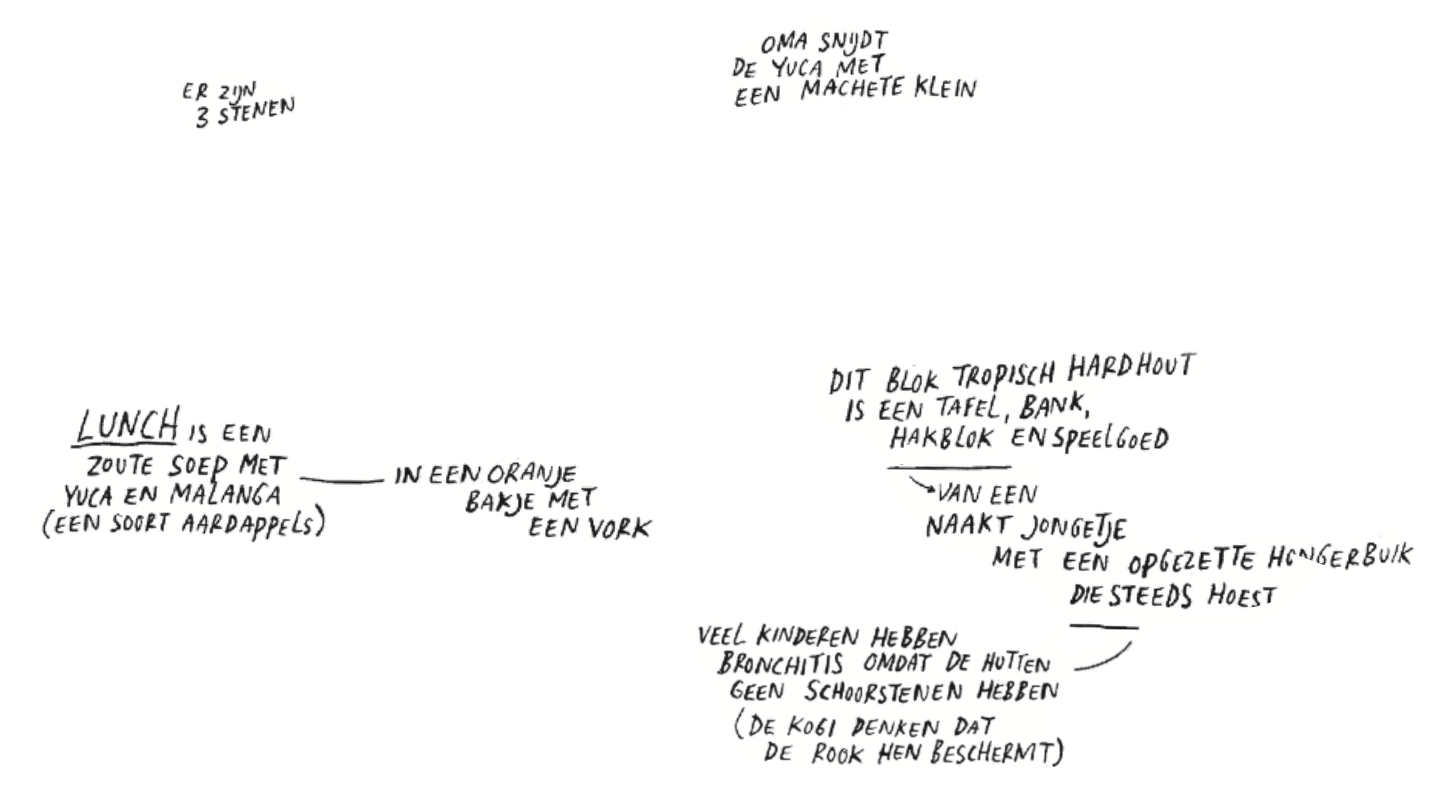 ER ZIJN
3 STENEN
OMA SNIJDT
DE YUCA MET
EEN MACHETE KLEIN
LUNCH IS EEN
ZOUTE SOEP MET
YUCA EN MALANGA
(EEN SOORT AARDAPPELS)
IN EEN ORANJE
BAKJE MET
EEN VORK
DIT BLOK TROPISCH HARDHOUT
IS EEN TAFEL, BANK,
HAKBLOK EN SPEELGOED
VAN EEN
NAAKT JONGETJE
MET EEN OPGEZETTE HONGERBUIK
DIE STEEDS HOEST
VEEL KINDEREN HEBBEN
BRONCHITIS OMDAT DE HUTTEN
GEEN SCHOORSTENEN HEBBEN
(DE KOGI DENKEN DAT
DE ROOK HEN BESCHERMT)